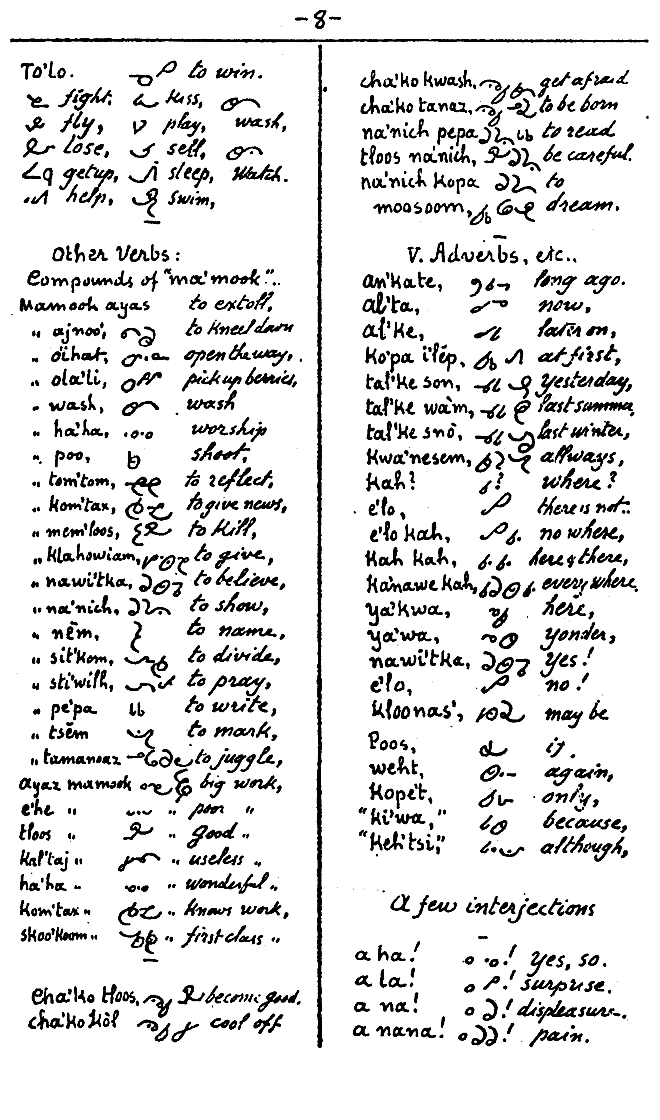 -8-
To'lo. to win.
fight, kiss,
fly, play, wash,
lose, sell,
getup, sleep, watch.
help, swim,
Other Verbs:
Compounds of "ma'mook"..
Mamook ayas to extoll,
" ajnoo', to kneel down
" oihat, open the way,
" ola'li, pick up berries,
" wash, wash
" ha'ha, worship
" poo, shoot,
" tom'tom, to reflect,
" kom'tax, to give news,
" mem'loos, to kill,
" klahowiam, to give,
" nawi'tka, to believe,
" na'nich, to show,
" nēm, to name,
" sit'kom, to divide,
" sti'wilh, to pray,
" pe'pa to write,
" tsēm to mark,
" tamanoaz to juggle,
ayaz mamook big work,
e'he " " poor "
tloos " " good "
kal'taj " " useless "
ha'ha " " wonderful "
kom'tax " " knows work,
skoo'koom " " first class "
Cha'ko tloos, become good.
cha'ko kòl cool off
cha'ko kwash, get afraid
cha'ko tanaz, to be born
na'nich pepa to read
tloos na'nich, be careful.
na'nich kopa to
moosoom, dream.
V. Adverbs, etc..
an'kate, long ago.
al'ta, now,
al'ke, later on,
ko'pa i'lép, at first,
tal'ke son, yesterday,
tal'ke wàm, last summa,
tal'ke snò, last winter,
kwa'nesem, allways,
kah? where?
e'lo, there is not..
e'lo kah, no where,
kah kah, here & there,
ka'nawe kah, every where,
ya'kwa, here,
ya'wa, yonder,
nawi'tka, yes!
e'lo, no!
kloonas', may be
Poos, if.
weht, again,
kopet, only,
"ki'wa," because,
"keh'tsi," although,
A few interjections
a ha! yes, so.
a la! surprise.
a na! displeasure.
a nana! pain.